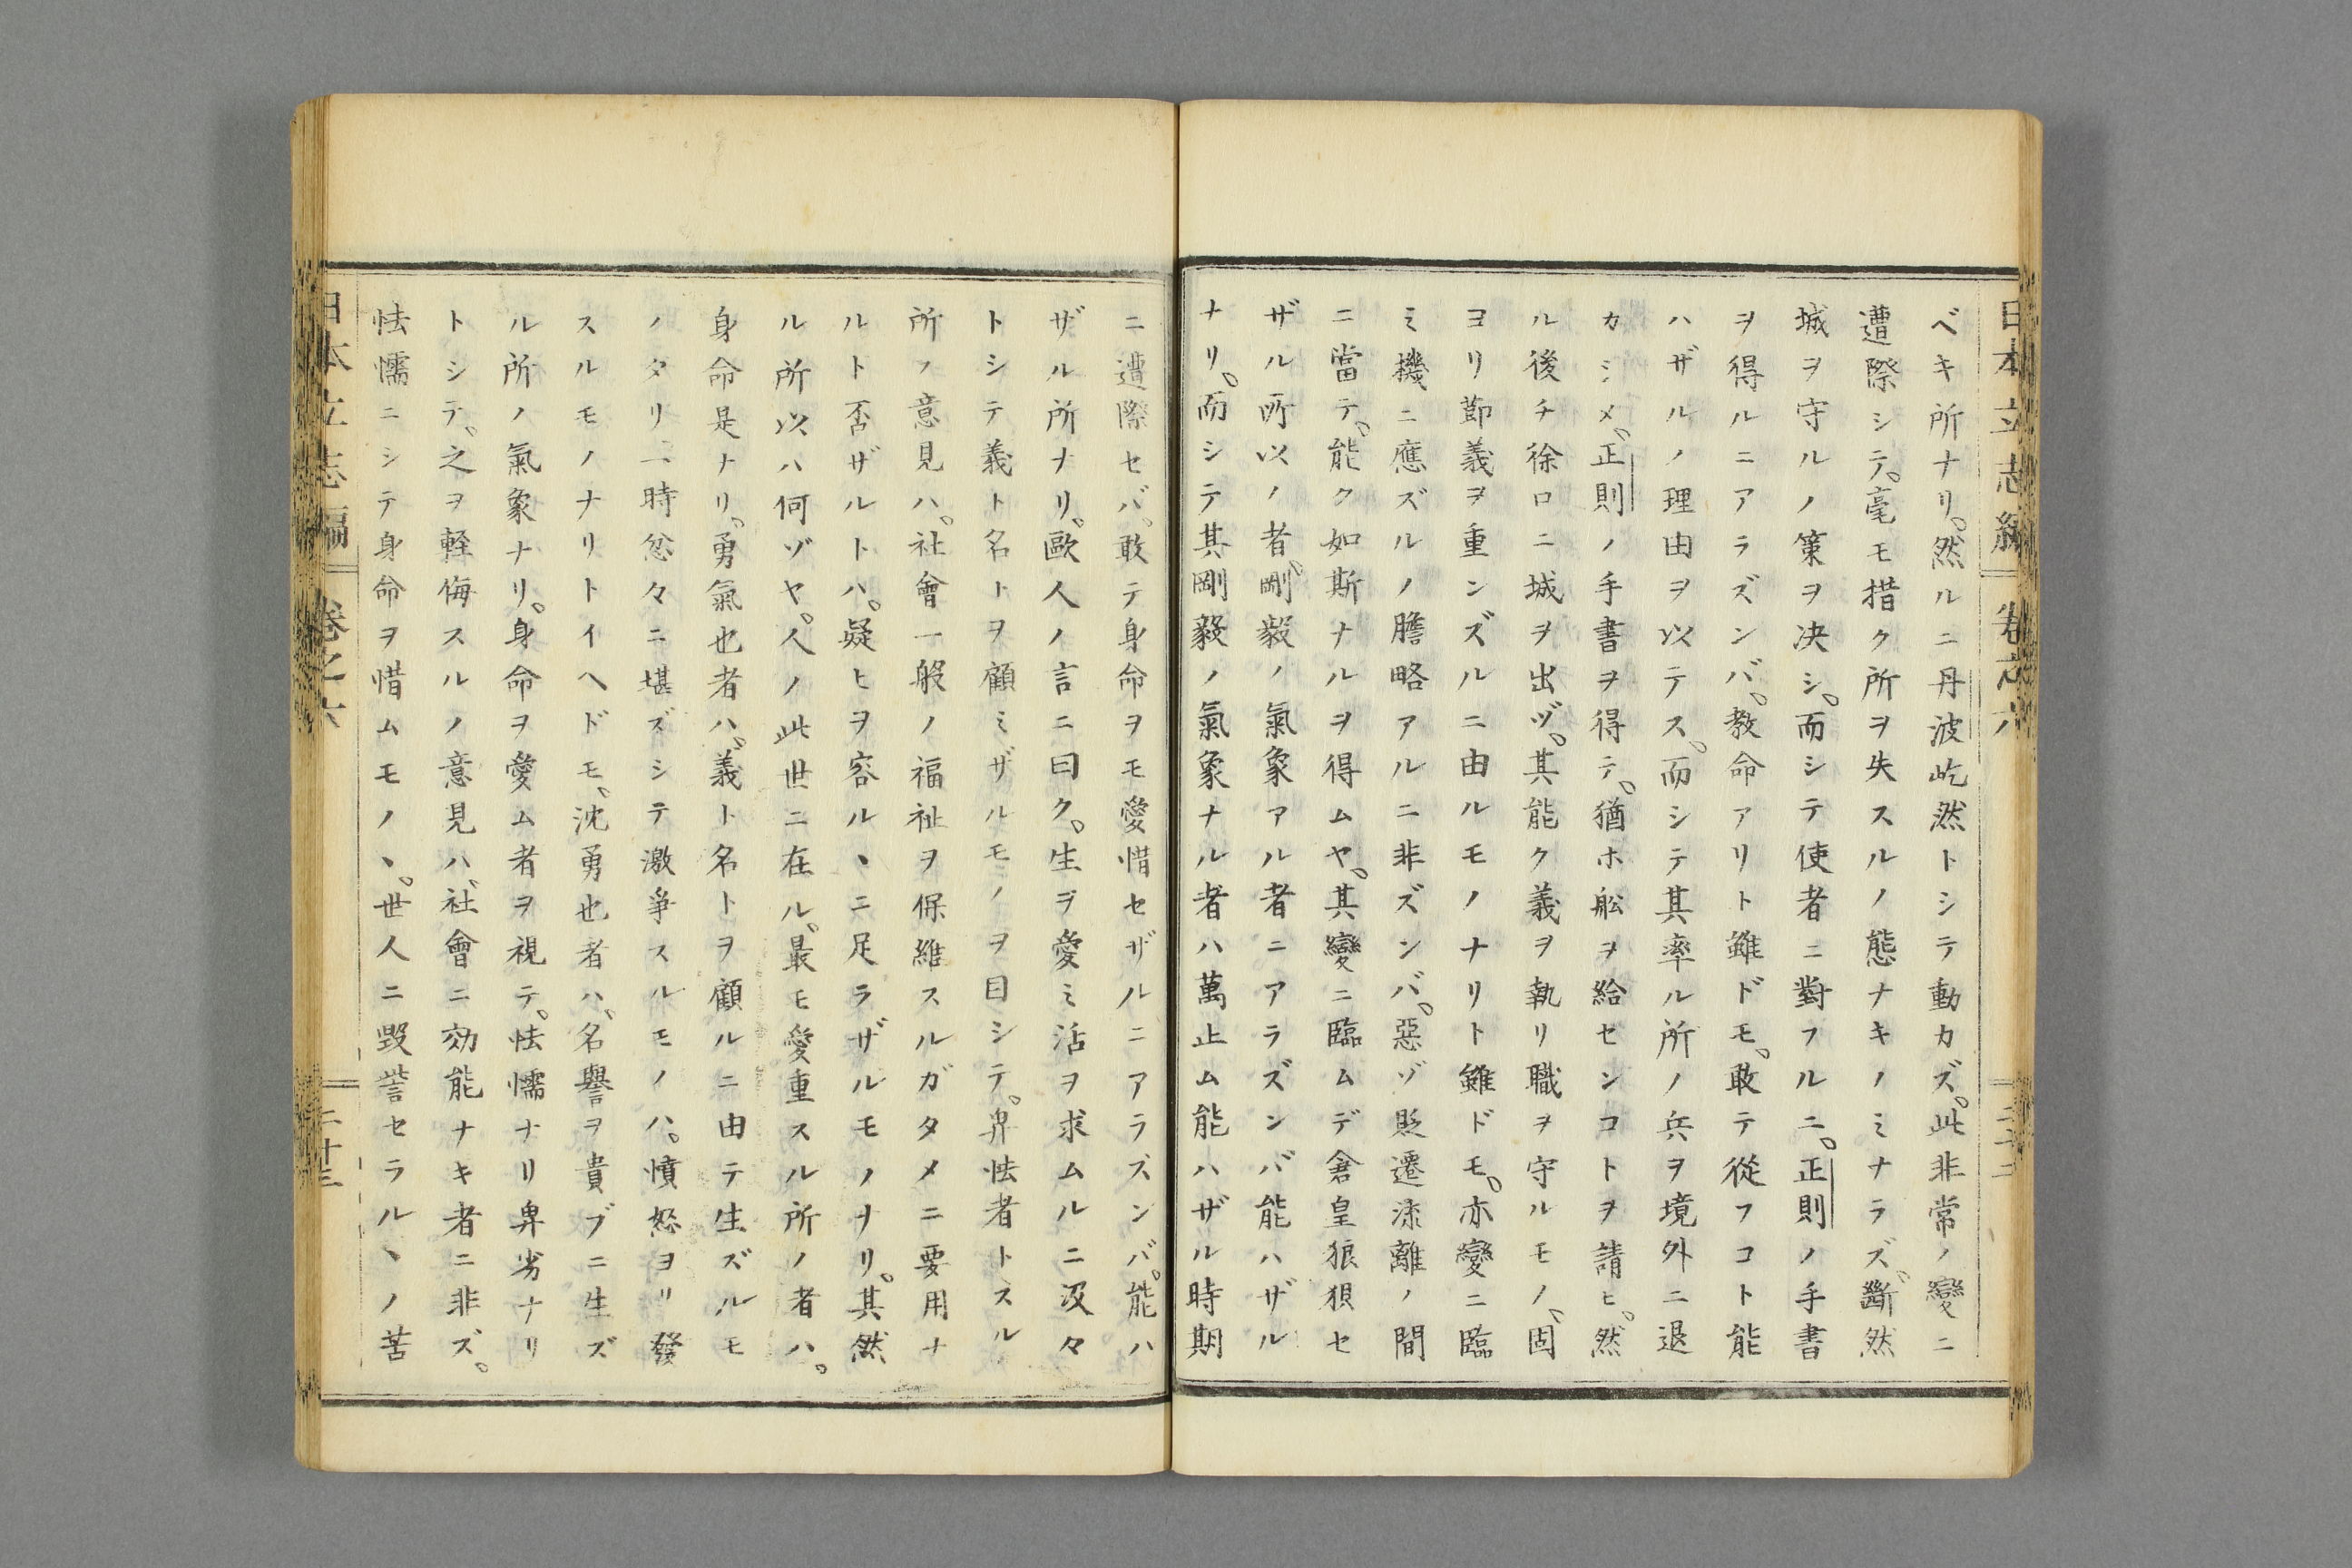 日本立志編 卷之六
ベキ所ナリ。然ルニ丹波屹然トシテ動カズ。此非常ノ變ニ
遭際シテ。毫モ措ク所ヲ失スルノ態ナキノミナラズ、斷然
城ヲ守ルノ策ヲ决シ。而シテ使者ニ對フルニ。正則ノ手書
ヲ得ルニアラズンバ。教命アリト雖ドモ。敢テ從フコト能
ハザルノ理由ヲ以テス。而シテ其率ル所ノ兵ヲ境外ニ退
カシメ、正則ノ手書ヲ得テ。猶ホ舩ヲ給センコトヲ請ヒ。然
ル後チ徐ロニ城ヲ出ヅ。其能ク義ヲ執リ職ヲ守ルモノ、固
ヨリ節義ヲ重ンズルニ由ルモノナリト雖ドモ。亦變ニ臨
ミ機ニ應ズルノ膽略アルニ非ズンバ。惡ゾ貶遷漆離ノ間
ニ當テ。能ク如斯ナルヲ得ムヤ。其變ニ臨ムデ倉皇狼狽セ
ザル所以ノ者、剛毅ノ氣象アル者ニアラズンバ能ハザル
ナリ。而シテ其剛毅ノ氣象ナル者ハ萬止ム能ハザル時期
ニ遭際セバ。敢テ身命ヲモ愛惜セザルニアラズンバ。能ハ
ザル所ナリ。歐人ノ言ニ曰ク。生ヲ愛ミ活ヲ求ムルニ汲々
トシテ義ト名トヲ顧ミザルモノヲ目シテ。卑怯者トスル
所ノ意見ハ。社會一般ノ福祉ヲ保維スルガタメニ要用ナ
ルト否ザルトハ。疑ヒヲ容ルヽニ足ラザルモノナリ。其然
ル所以ハ何ゾヤ。人ノ此世ニ在ル。最モ愛重スル所ノ者ハ。
身命是ナリ。勇氣也者ハ、義ト名トヲ顧ルニ由テ生ズルモ
ノタリ、一時忿々ニ堪ズシテ激爭スルモノハ。憤怒ヨリ發
スルモノナリトイヘドモ、沈勇也者ハ、名譽ヲ貴ブニ生ズ
ル所ノ氣象ナリ。身命ヲ愛ム者ヲ視テ。怯懦ナリ卑劣ナリ
トシテ、之ヲ輕侮スルノ意見ハ、社會ニ効能ナキ者ニ非ズ。
怯懦ニシテ身命ヲ惜ムモノヽ。世人ニ毀訾セラルヽノ苦
日本立志編 卷之六 二十三